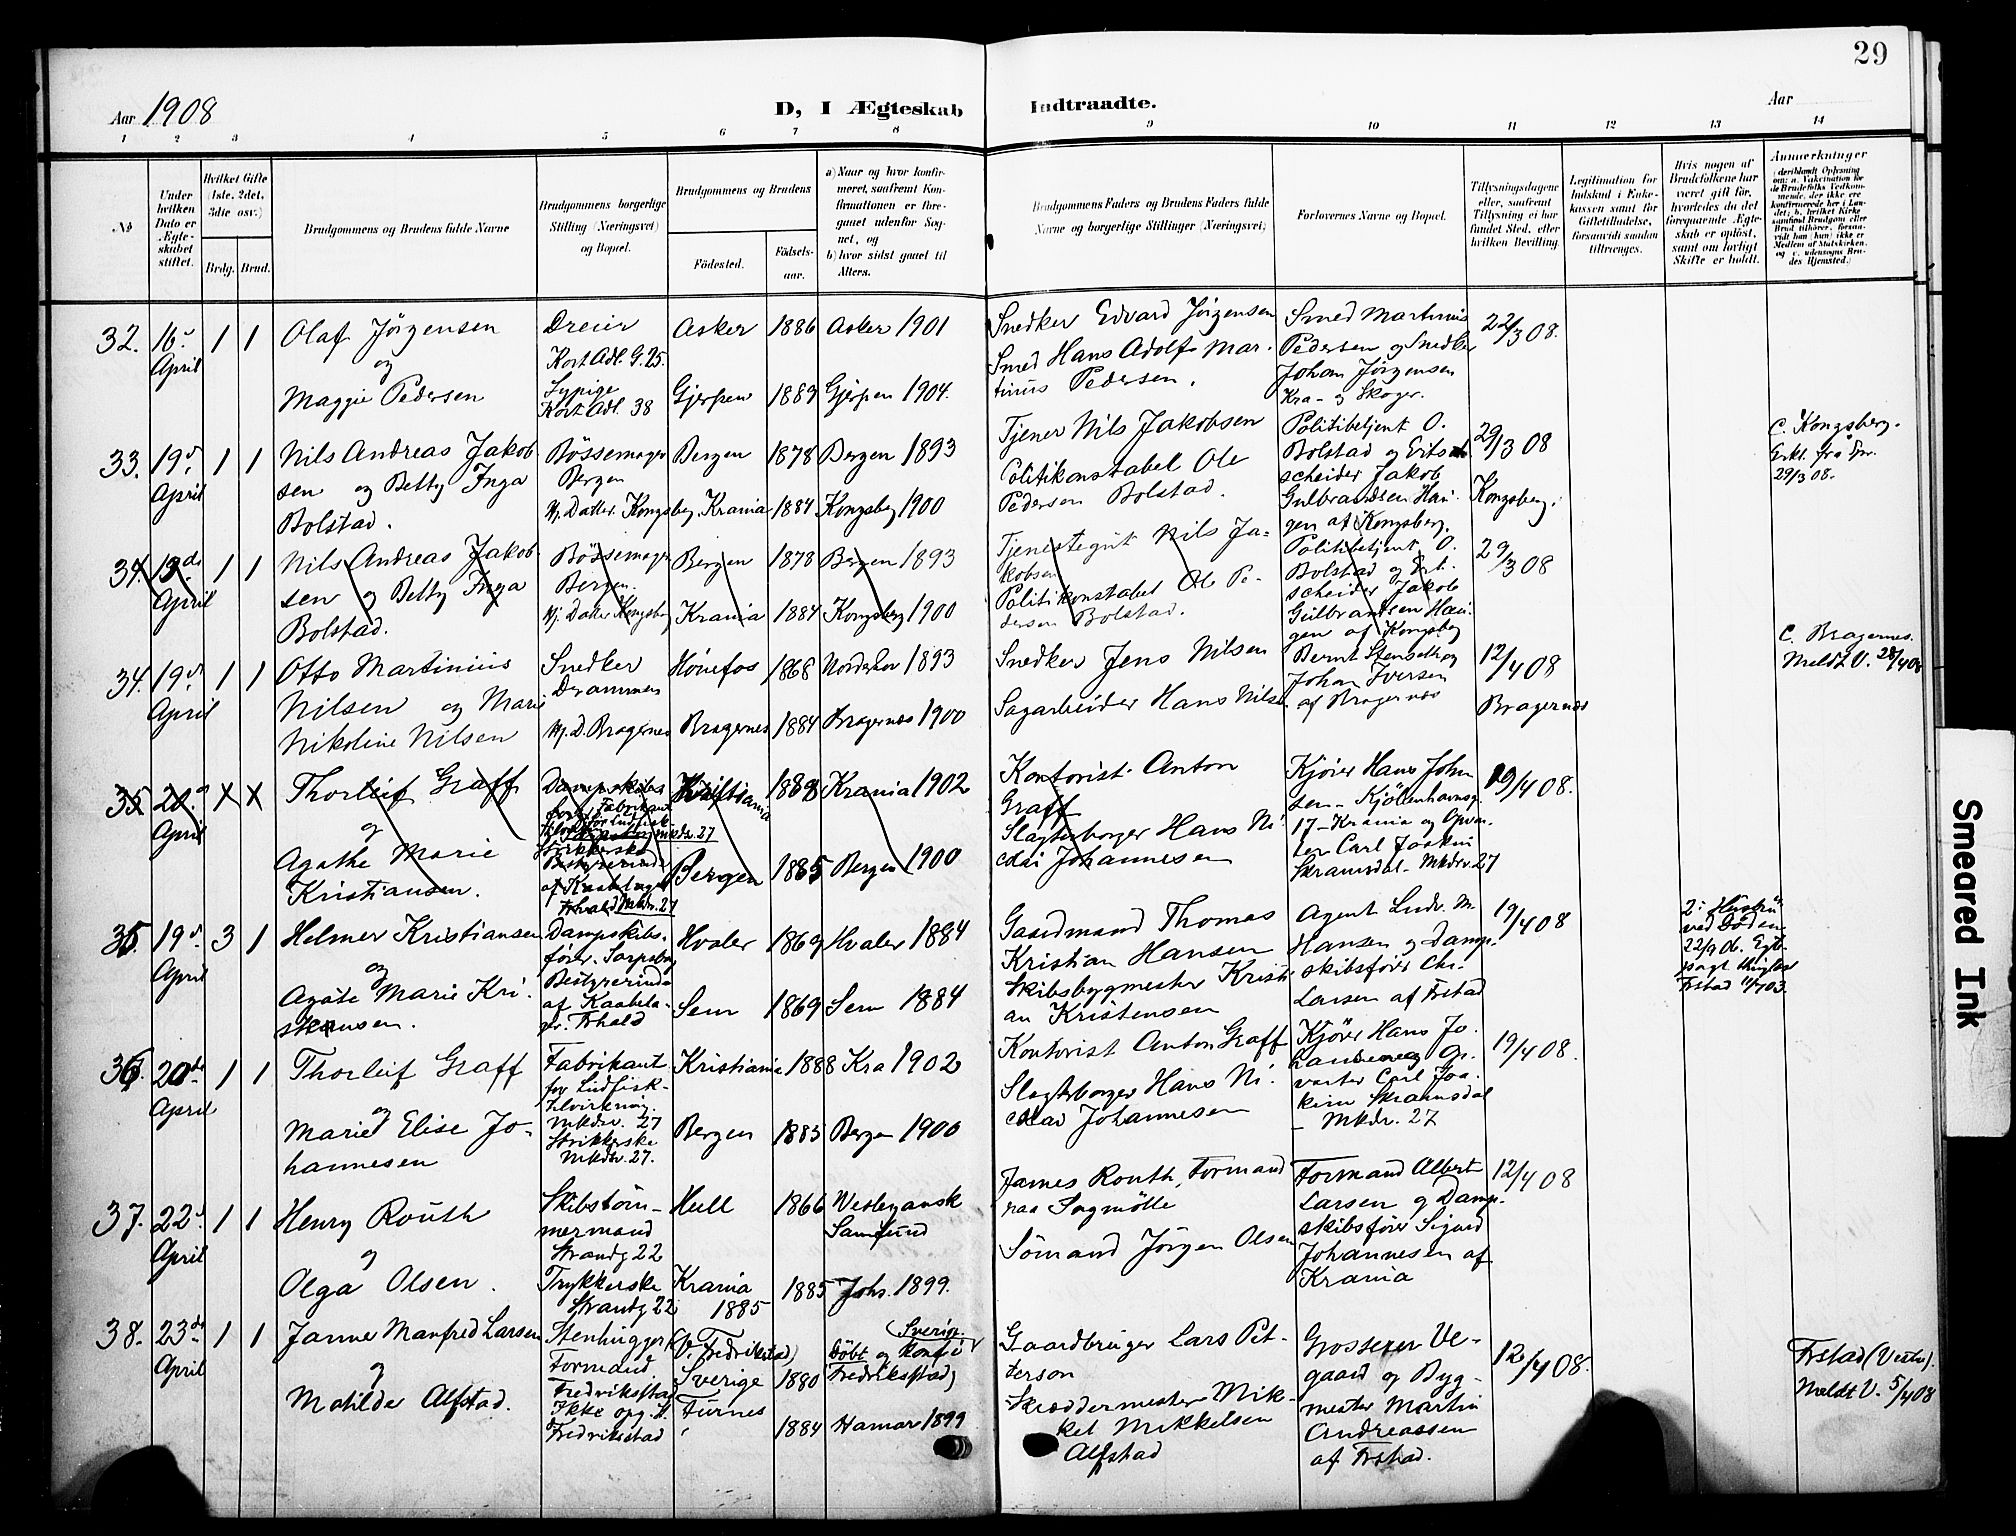 29
Aar 1908
D, I Ægteskab Indtraadte.
Aar
1 2 3 4 5 6 7 8 9 10 11 12 13 14
No
Under hvilken Dato er Ægteskabet stiftet.
Hvilket Gifte (1ste, 2det, 3die osv.)
Brdg. Brud.
Brudgommens og Brudens fulde Navne
Brudgommens borgerlige Stilling (Næringsvei) og Bopæl.
Brudgommens og Brudens
Fødested.
Fødselsaar.
a) Naar og hvor konfirmeret, saafremt Konfirmationen er foregaaet udenfor Sognet, og
b) hvor sidst gaaet til Alters.
Brudgommens Faders og Brudens Faders fulde Navne og borgerlige Stillinger (Næringsvei)
Forlovernes Navne og Bopæl.
Tillysningsdagene eller, saafremt Tillysning ei har fundet Sted, efter hvilken Bevilling.
Legitimation for Indskud i Enkekassen samt for Giftetilladelse, forsaavidt saadan tiltrænges.
Hvis nogen af Brudefolkene har været gift før, hvorledes da det foregaaende Ægteskab er opløst, samt om lovligt Skifte er holdt.
Anmerkninger
32. 16 April 1 1
Olaf Jörgensen
og
Maggie Pedersen
Dreier
Kort Adl. G. 25.
Sypige
Kort Adl. 38
Asker 1886 Asker 1901
Gjerpen 1889 Gjerpen 1904.
Snedker Edvard Jörgensen
Smed Hans Adolf Martinus Pedersen.
Smed Martinius
Pedersen og Snedker
Johan Jörgensen
Kra- og Skoger.
22/3 08.
33. 19 April 1 1
Nils Andreas Jakobsen
og Betty Inga
Bolstad.
Bössemager
Bergen
Hj. Datter. Kongsberg.
Bergen 1878 Bergen 1893
Krania 1884 Kongsberg 1900
Tjener Nils Jakobsen
Politikonstabel Ole
Pedersen Bolstad.
Politibetjent O.
Bolstad og Ertsscheider Jakob
Gulbrandsen Haugen af Kongsberg.
29/3 08
Kongsberg.
C. Kongsberg.
29/3 08.
34. 19de April 1 1
Nils Andreas Jakobsen
og Betty Inga
Bolstad.
Bössemager
Bergen.
Hj. Datter Kongsberg
Bergen 1878 Bergen 1893
Krania 1884 Kongsberg 1900
Tjenestegut Nils Jakobsen
Politikonstabel Ole Pedersen Bolstad.
Politibetjent O.
Bolstad og Ertscheider Jakob
Gulbrandsen Haugen af Kongsberg
29/3 08
34. 19 April 1 1
Otto Martinius
Nilsen og Marie
Nikoline Nilsen
Snedker
Drammen
Hj. D. Bragernes
Hönefos 1868 Norderhov 1893
Bragernes 1884 Bragernes 1900
Snedker Jens Nilsen
Sagarbeider Hans Nilsen
Bernt Stenseth og
Johan Iversen
af Bragernes
12/4 08
Bragernes
C. Bragernes.
Meldt V. 28/4 08
35 20 April
Thorleif Graff
og
Agathe Marie
Kristiansen.
Kristiania 1888 Krania 1902
Bergen 1885 Bergen 1900
Kontorist Anton
Graff
Slagterborger Hans Nicolai Johannesen
Kjörer Hans Johnsen - Kjöbenhavnsg.
17 - Krania og Opvarter Carl Joakim
Skramsdal - Mkdr. 27
19/4 08.
35 19 April 3 1
Helmer Kristiansen
og
Agate Marie Kristensen.
Dampskibsförer. Sarpsborg
Bestyrerinde
af Kaabelager. Frhald
Hvaler 1869 Hvaler 1884
Sem 1869 Sem 1884
Gaardmand Thomas
Kristian Hansen
Skibsbygmester Kristian Kristensen
Agent Ludv. M.
Hansen og Dampskibsförer Chr.
Larsen af Frstad
19/4 08
2: Hustru
ved Döden
22/9 06.
Frstad 11/7 03.
36 20de April 1 1
Thorleif Graff
og
Marie Elise Johannesen
Fabrikant
for Ludfisktilvirkning.
Mkdr. 27
Strikkerske
Mkdr. 27.
Kristiania 1888 Kra 1902
Bergen 1885 Bergen 1900
Kontorist Anton Graff
Slagterborger Hans Nicolai Johannesen
Kjörer Hans Johansen og Opvarter Carl Joakim Skramsdal
- Mkdr. 27
19/4 08.
37. 22 April 1 1
Henry Routh
og
Olga Olsen.
Skibstömmermand
Strandg 22
Trykkerske
Strandg 22
Hull 1866 Wesleyansk
Samfund
Krania 1885 Johs. 1899.
1885
James Routh, Formand
paa Sagmölle
Sömand Jörgen Olsen
Formand Albert
Larsen og Dampskibsförer Sigurd
Johannesen af
Krania
12/4 08
38. 23de April 1 1
Janne Manfred Larsen
og
Matilde Alfstad.
Stenhugger
Formand
Fredriksstad
Ikke opg. St.
Fredriksstad
(V. Fredrikstad)
Sverige 1880
Furnes 1884
(Sverige.
Döbt og Konfi
Fredriksstad)
Hamar 1899
Gaardbruger Lars Petterson
Skræddermester Mikkel Mikkelsen
Alfstad
Grosserer Vegaard og Bygmester Martin
Andreassen
af Frstad.
12/4 08.
Frstad (Vestre).
Meldt V. 5/4 08
Smeared Ink